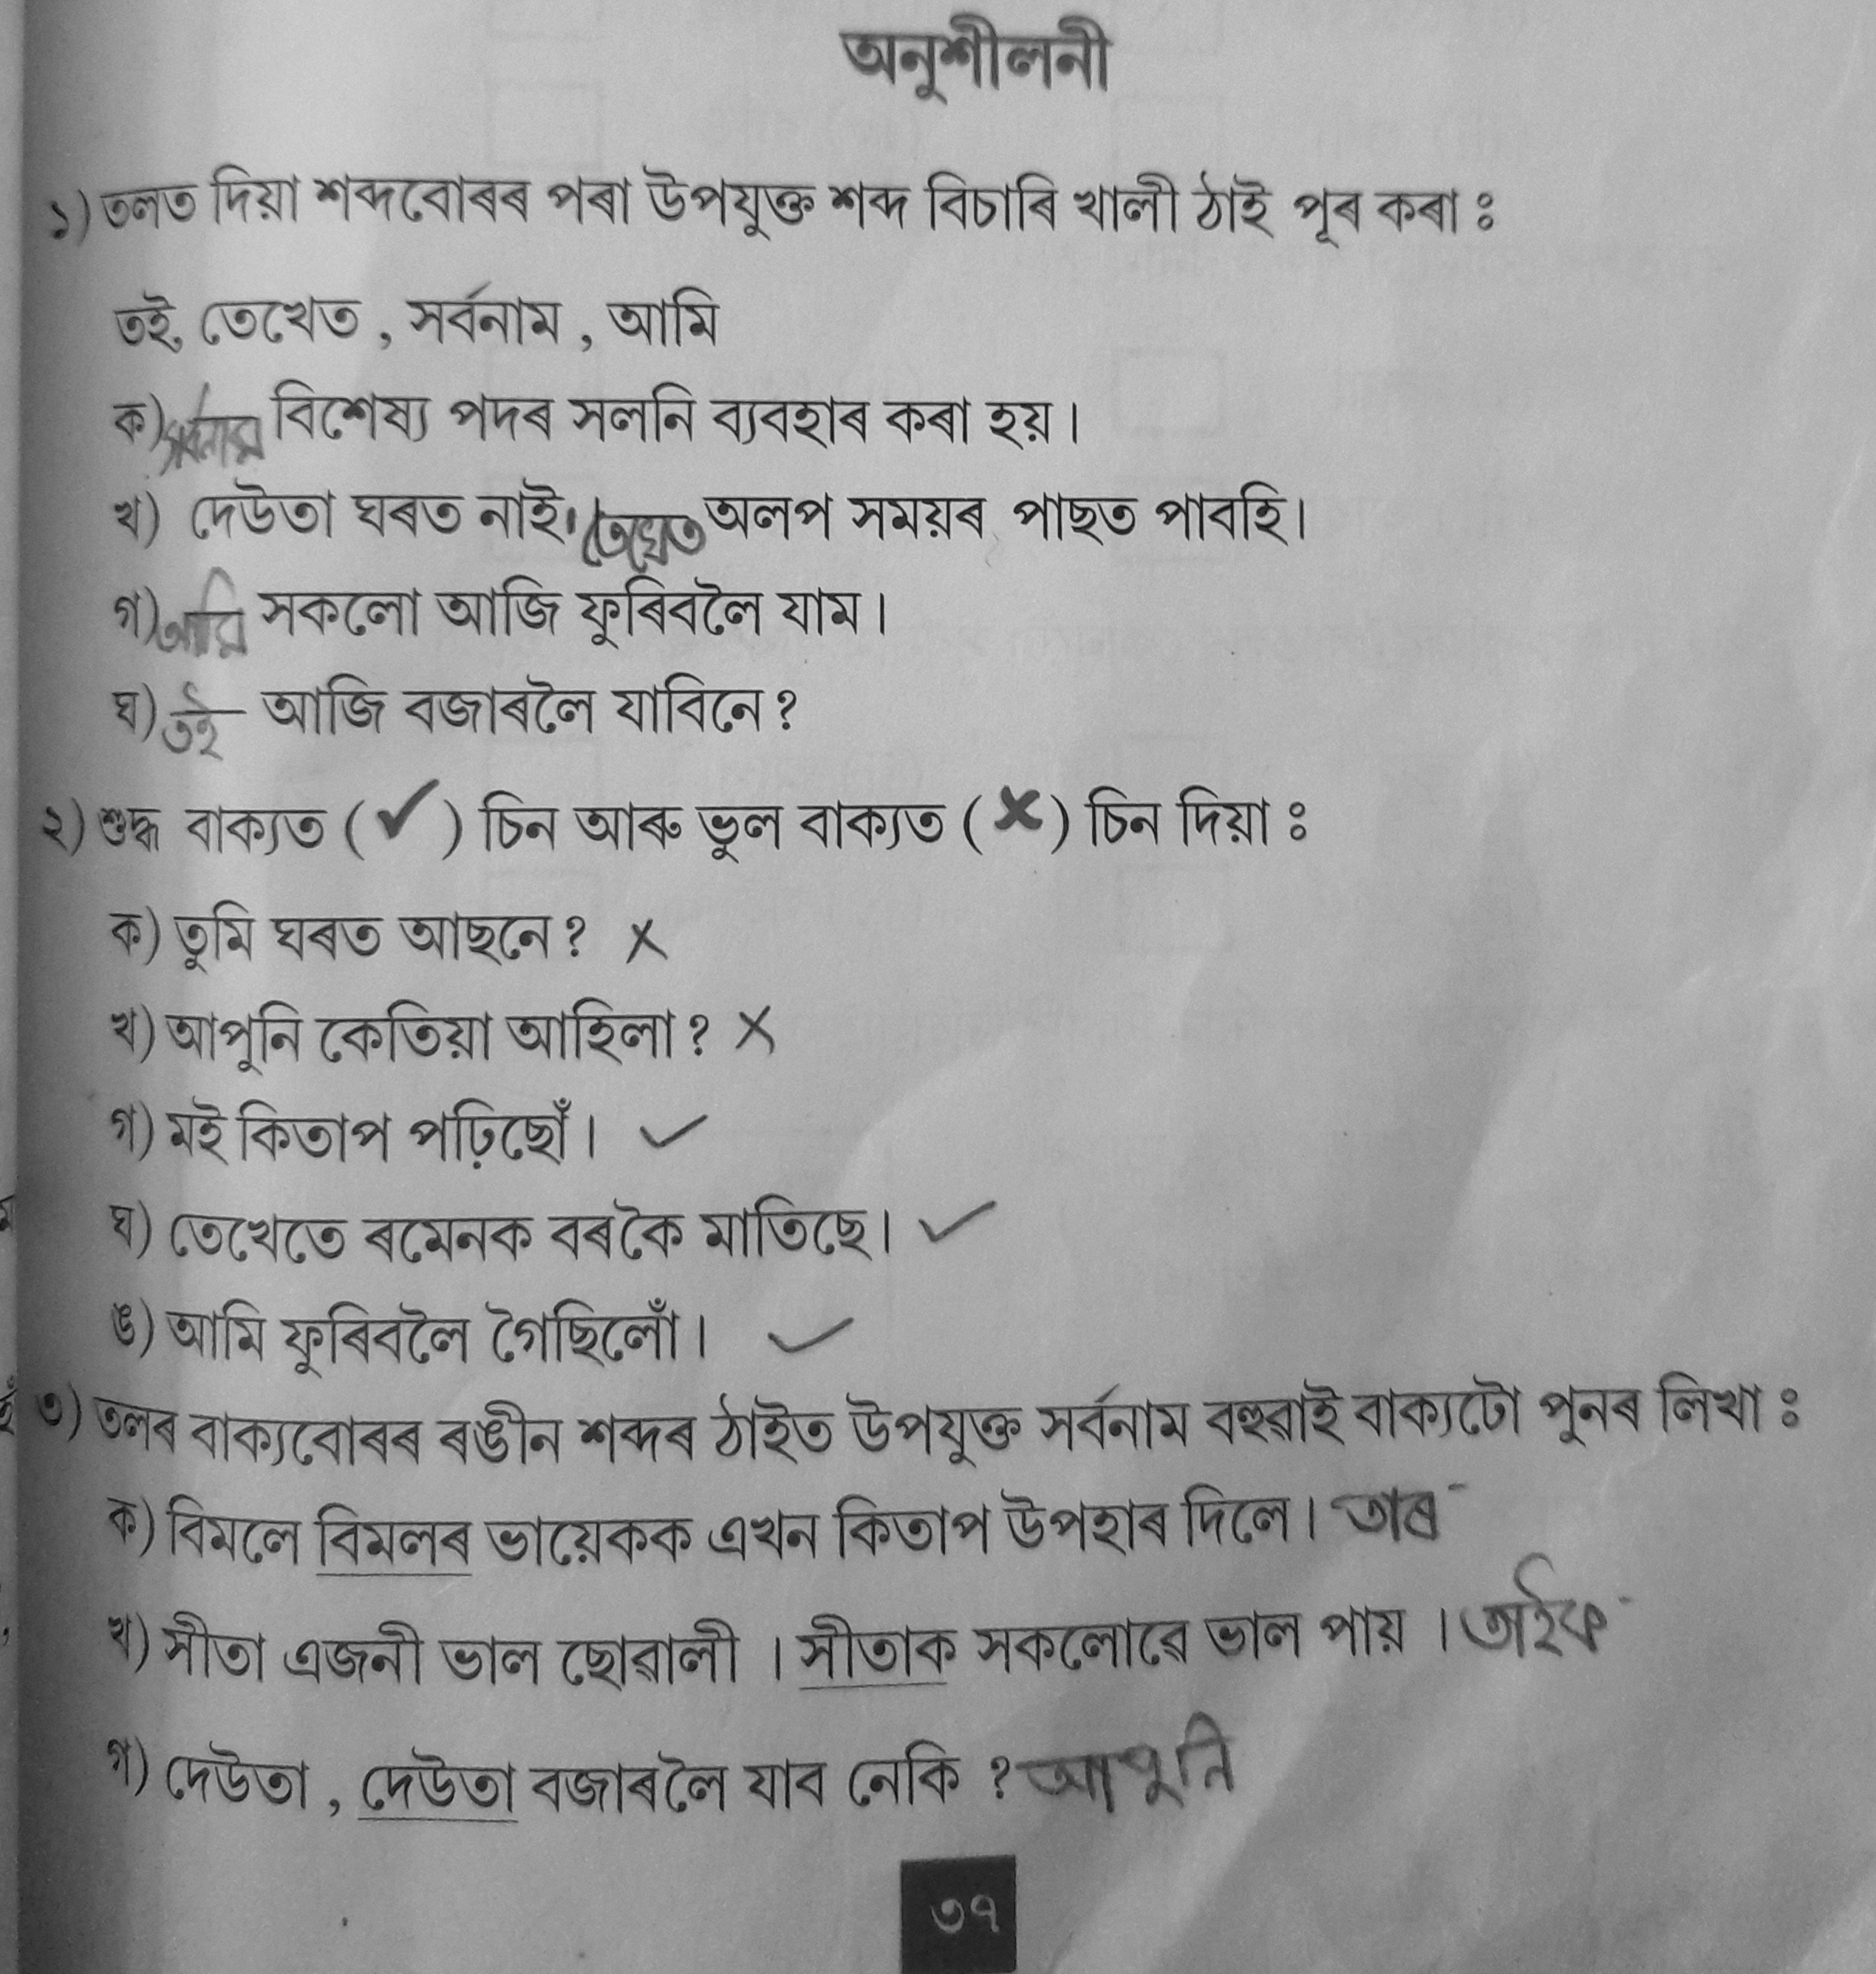 অনুশীলনী
১) তলত দিয়া শব্দবোৰৰ পৰা উপযুক্ত শব্দ বিচাৰি খালী ঠাই পূৰ কৰা ঃ
তই, তেখেত , সৰ্বনাম , আমি
ক) সৰ্বনাম বিশেষ্য পদৰ সলনি ব্যবহাৰ কৰা হয়।
খ) দেউতা ঘৰত নাই। তেখেত অলপ সময়ৰ পাছত পাবহি।
গ) আমি সকলো আজি ফুৰিবলৈ যাম।
ঘ) তই আজি বজাৰলৈ যাবিনে?
২) শুদ্ধ বাক্যত (✓) চিন আৰু ভুল বাক্যত (✗) চিন দিয়া ঃ
ক) তুমি ঘৰত আছনে? ✗
খ) আপুনি কেতিয়া আহিলা? ✗
গ) মই কিতাপ পঢ়িছোঁ। ✓
ঘ) তেখেতে ৰমেনক বৰকৈ মাতিছে। ✓
ঙ) আমি ফুৰিবলৈ গৈছিলোঁ। ✓
৩) তলৰ বাক্যবোৰৰ ৰঙীন শব্দৰ ঠাইত উপযুক্ত সৰ্বনাম বহুৱাই বাক্যটো পুনৰ লিখা ঃ
ক) বিমলে বিমলৰ ভায়েকক এখন কিতাপ উপহাৰ দিলে। তাৰ
খ) সীতা এজনী ভাল ছোৱালী । সীতাক সকলোৱে ভাল পায় । তাইক
গ) দেউতা , দেউতা বজাৰলৈ যাব নেকি ? আপুনি
৩৭